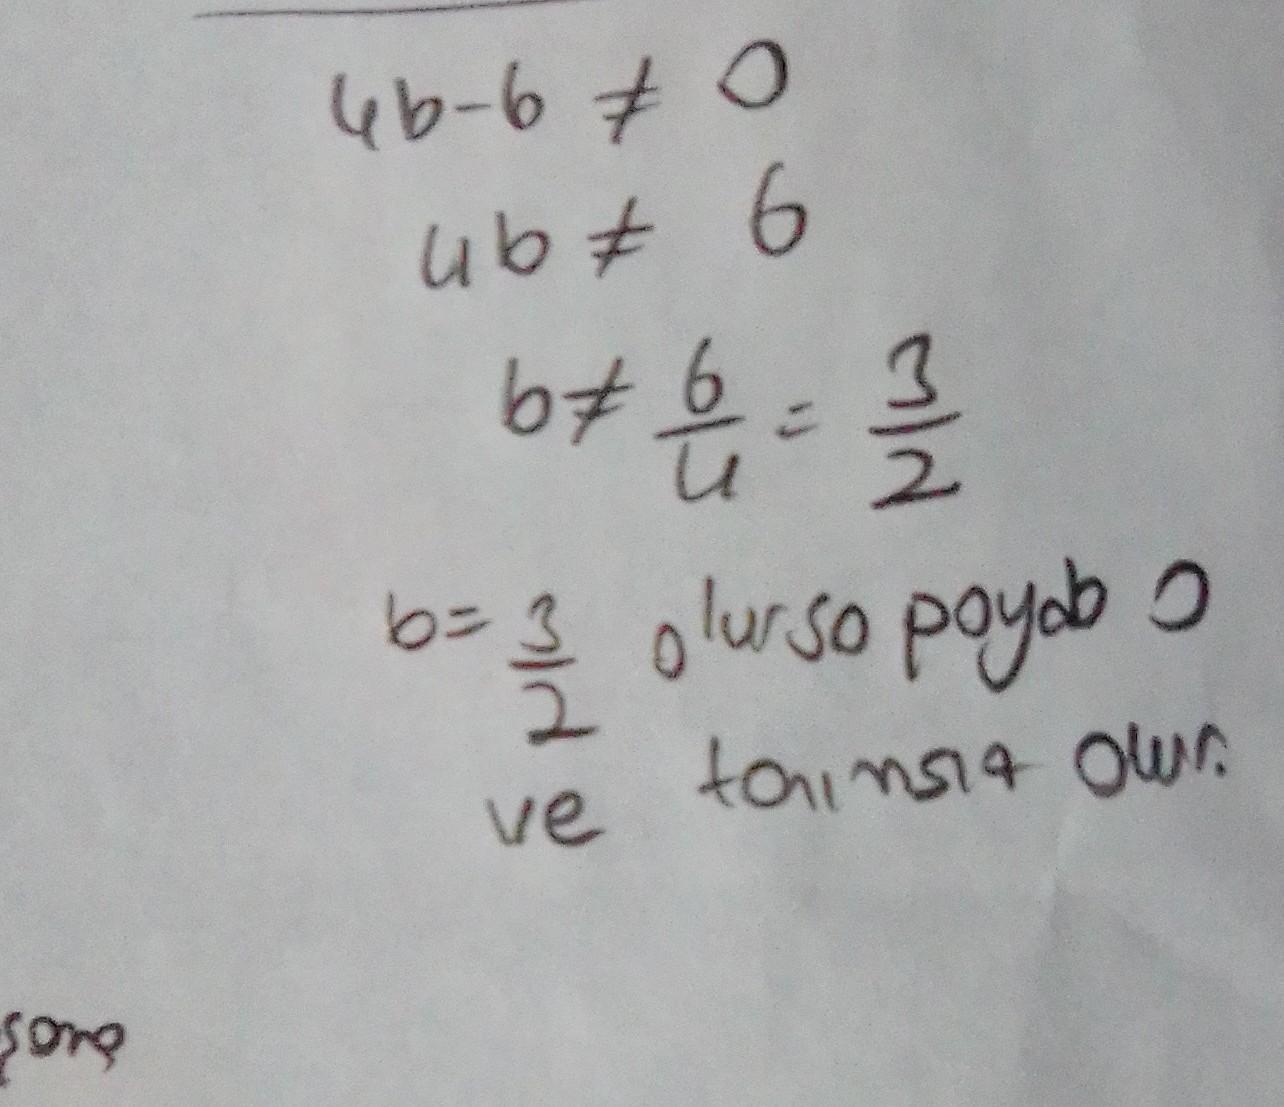 4b-6 ≠ 0
4b ≠ 6
b ≠ 6/4 = 3/2
b = 3/2 olursa payda 0
ve tanımsız olur.